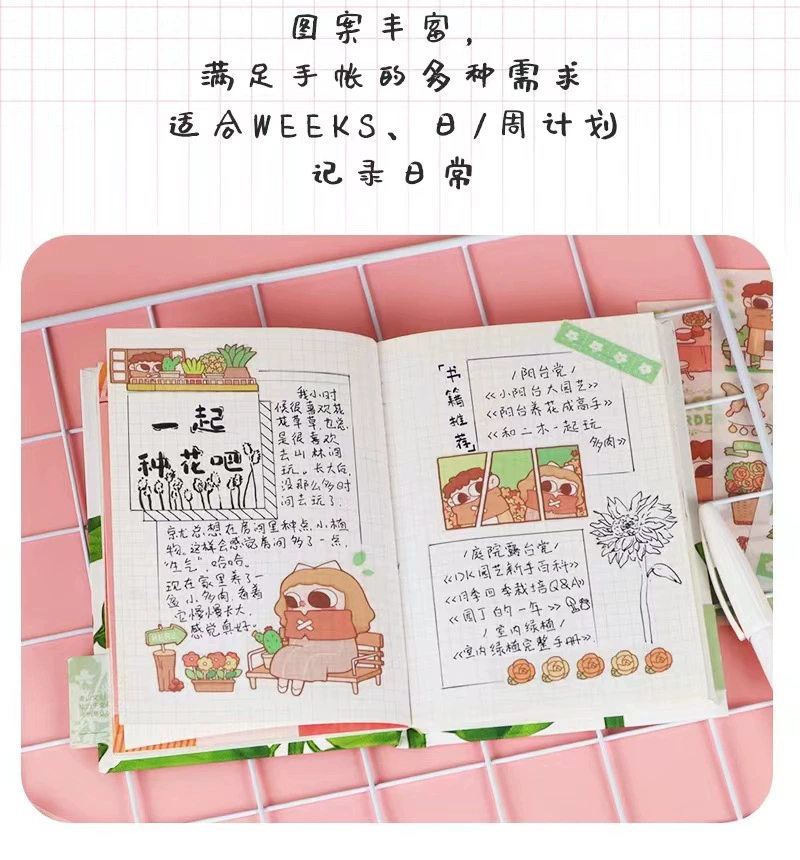 图案丰富，
满足手帐的多种需求
适合WEEKS、日/周计划
记录日常
一起
种花吧
我小时
候很喜欢花
花草草，也总
是很喜欢
去山林间
玩。长大后，
没那么多时
间去玩了。
就总想在房间里种点小植
物。这样会感觉房间多了一点
“生气”，哈哈。
现在家里养了一
盆小多肉，看着
它慢慢长大，
感觉真好。
「书籍推荐」
/阳台党/
《小阳台大园艺》
《阳台养花成高手》
《和二木一起玩
多肉》
/庭院露台党/
《DK园艺新手百科》
《月季四季栽培Q&A》
《园丁的一年》
/室内绿植/
《室内绿植完整手册》